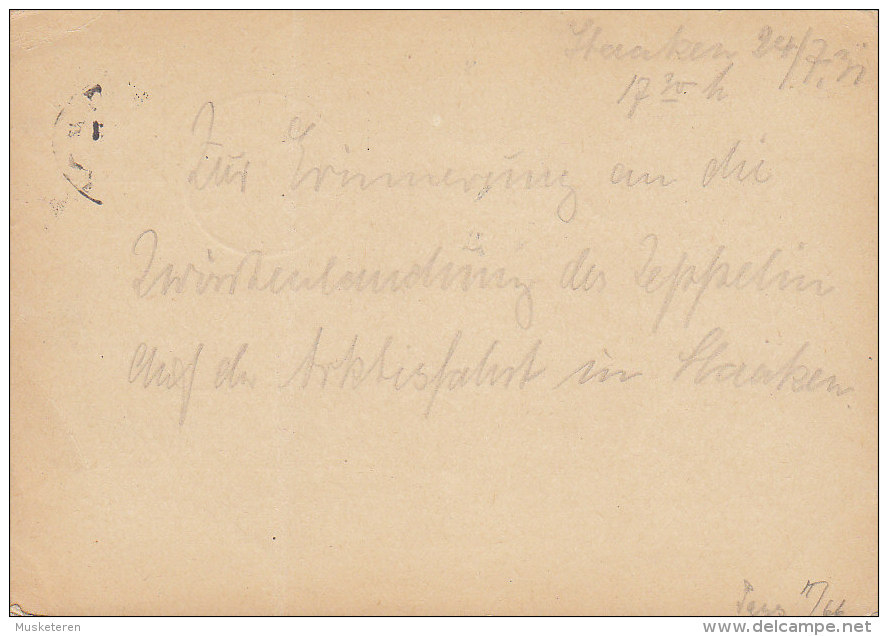 Staaken 24/7.31
17 30 h
Zur Erinnerung an die
Zwischenlandung des Zeppelin
auf der Arktisfahrt in Staaken
/66
Musketeren
delcampe.net